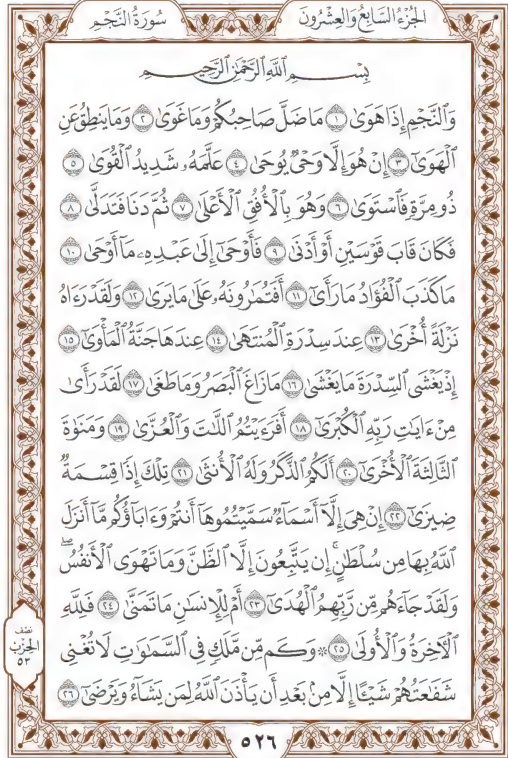 سُورَةُ النَّجْمِ الجُزْءُ السَّابِعُ وَالعِشْرُونَ
بِسْمِ ٱللَّهِ ٱلرَّحْمَٰنِ ٱلرَّحِيمِ
وَٱلنَّجْمِ إِذَا هَوَىٰ ١ مَا ضَلَّ صَاحِبُكُمْ وَمَا غَوَىٰ ٢ وَمَا يَنطِقُ عَنِ
ٱلْهَوَىٰٓ ٣ إِنْ هُوَ إِلَّا وَحْىٌ يُوحَىٰ ٤ عَلَّمَهُۥ شَدِيدُ ٱلْقُوَىٰ ٥
ذُو مِرَّةٍ فَٱسْتَوَىٰ ٦ وَهُوَ بِٱلْأُفُقِ ٱلْأَعْلَىٰ ٧ ثُمَّ دَنَا فَتَدَلَّىٰ ٨
فَكَانَ قَابَ قَوْسَيْنِ أَوْ أَدْنَىٰ ٩ فَأَوْحَىٰٓ إِلَىٰ عَبْدِهِۦ مَآ أَوْحَىٰ ١٠
مَا كَذَبَ ٱلْفُؤَادُ مَا رَأَىٰٓ ١١ أَفَتُمَٰرُونَهُۥ عَلَىٰ مَا يَرَىٰ ١٢ وَلَقَدْ رَءَاهُ
نَزْلَةً أُخْرَىٰ ١٣ عِندَ سِدْرَةِ ٱلْمُنتَهَىٰ ١٤ عِندَهَا جَنَّةُ ٱلْمَأْوَىٰٓ ١٥
إِذْ يَغْشَى ٱلسِّدْرَةَ مَا يَغْشَىٰ ١٦ مَا زَاغَ ٱلْبَصَرُ وَمَا طَغَىٰ ١٧ لَقَدْ رَأَىٰ
مِنْ ءَايَٰتِ رَبِّهِ ٱلْكُبْرَىٰٓ ١٨ أَفَرَءَيْتُمُ ٱللَّٰتَ وَٱلْعُزَّىٰ ١٩ وَمَنَوٰةَ
ٱلثَّالِثَةَ ٱلْأُخْرَىٰٓ ٢٠ أَلَكُمُ ٱلذَّكَرُ وَلَهُ ٱلْأُنثَىٰ ٢١ تِلْكَ إِذًا قِسْمَةٌ
ضِيزَىٰٓ ٢٢ إِنْ هِىَ إِلَّآ أَسْمَآءٌ سَمَّيْتُمُوهَآ أَنتُمْ وَءَابَآؤُكُم مَّآ أَنزَلَ
ٱللَّهُ بِهَا مِن سُلْطَٰنٍ ۚ إِن يَتَّبِعُونَ إِلَّا ٱلظَّنَّ وَمَا تَهْوَى ٱلْأَنفُسُ ۖ
وَلَقَدْ جَآءَهُم مِّن رَّبِّهِمُ ٱلْهُدَىٰٓ ٢٣ أَمْ لِلْإِنسَٰنِ مَا تَمَنَّىٰ ٢٤ فَلِلَّهِ
ٱلْءَاخِرَةُ وَٱلْأُولَىٰ ٢٥ ۞ وَكَم مِّن مَّلَكٍ فِى ٱلسَّمَٰوَٰتِ لَا تُغْنِى
شَفَٰعَتُهُمْ شَيْـًٔا إِلَّا مِنۢ بَعْدِ أَن يَأْذَنَ ٱللَّهُ لِمَن يَشَآءُ وَيَرْضَىٰٓ ٢٦
نصف
الحِزْب
٥٣
٥٢٦